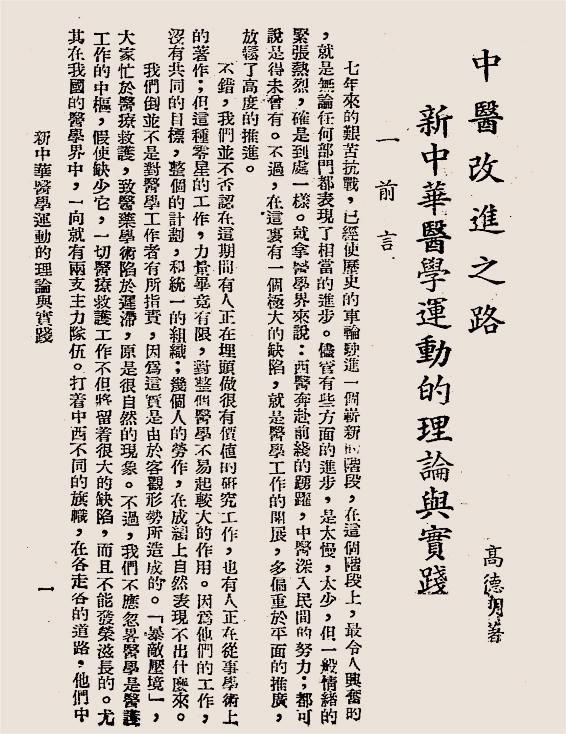 中醫改進之路
新中華醫學運動的理論與實踐
高德明著
一 前言
七年來的艱苦抗戰，已經使歷史的車輪駛進一個嶄新的階段，在這個階段上，最令人興奮的
，就是無論任何部門都表現了相當的進步。儘管有些方面的進步，是太慢，太少，但一般情緒的
緊張熱烈，確是到處一樣。就拿醫學界來說：西醫奔赴前綫的踴躍，中醫深入民間的努力；都可
說是得未曾有。不過，在這裏有一個極大的缺陷，就是醫學工作的開展，多偏重於平面的推廣，
放鬆了高度的推進。
不錯，我們並不否認在這期間有人正在埋頭做很有價值的研究工作，也有人正在從事學術上
的著作；但這種零星的工作，力量畢竟有限，對整個醫學不易起較大的作用。因爲他們的工作，
沒有共同的目標，整個的計劃，和統一的組織；幾個人的勞作，在成績上自然表現不出什麽來。
我們倒並不是對醫學工作者有所指責，因爲這實是由於客觀形勢所造成的。「暴敵壓境」，
大家忙於醫療救護，致醫藥學術陷於遲滯，原是很自然的現象。不過，我們不應忽畧醫學是醫護
工作的中樞，假使缺少它，一切醫療救護工作不但將留着很大的缺陷，而且不能發榮滋長的。尤
其在我國的醫學界中，一向就有兩支主力隊伍。打着中西不同的旗幟，在各走各的道路。他們中
新中華醫學運動的理論與實踐
一